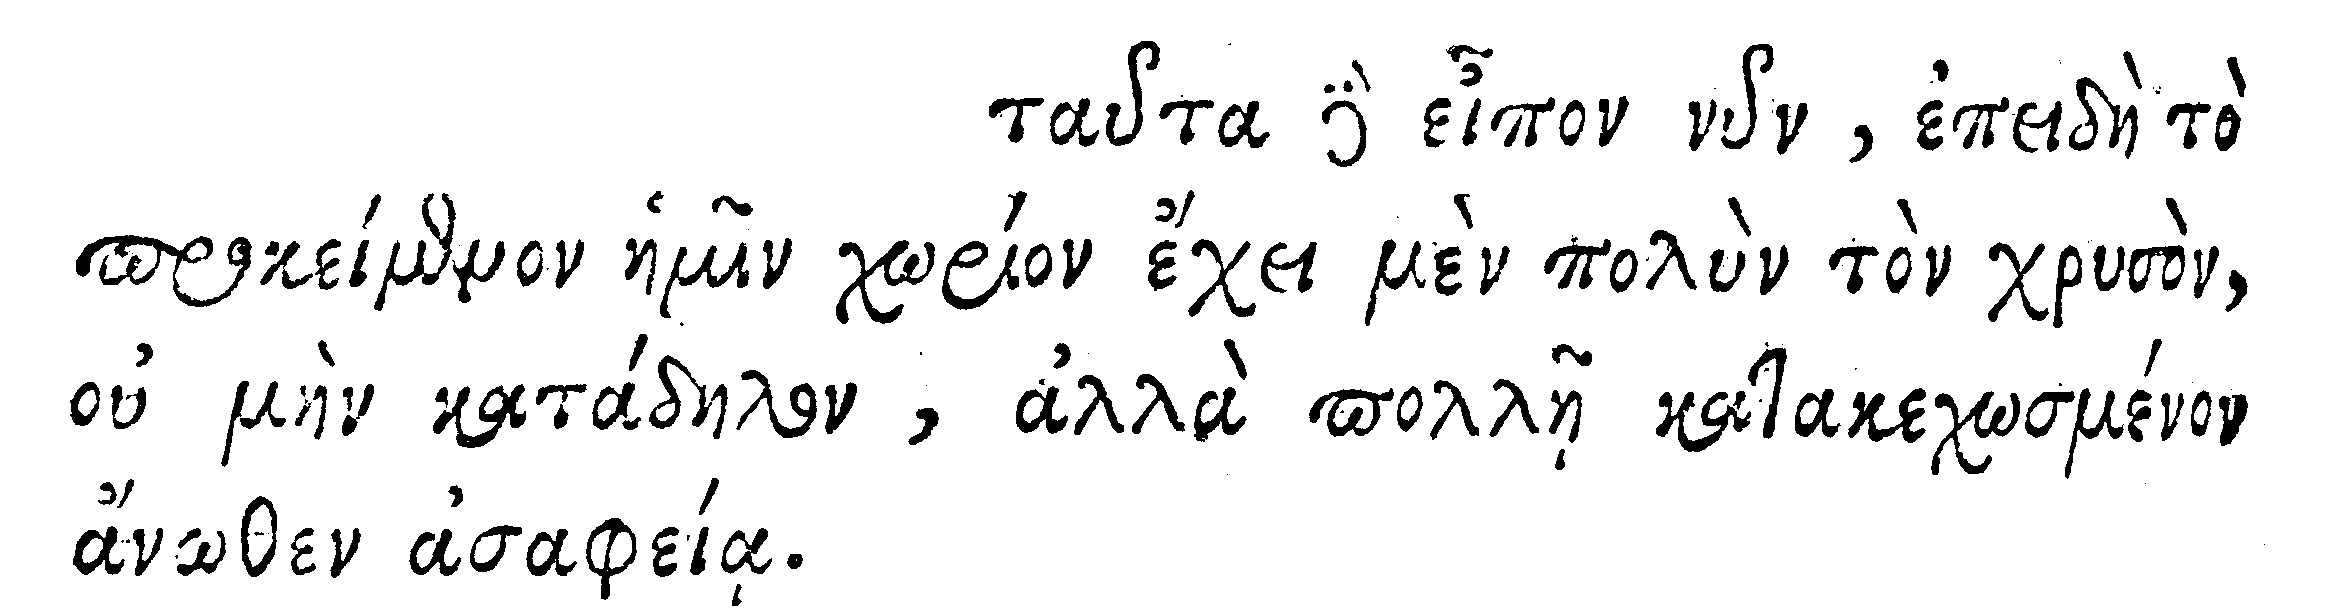 ταῦτα γὰρ εἶπον νῦν, ἐπειδὴ τὸ
προκείμενον ἡμῖν χωρίον ἔχει μὲν πολὺν τὸν χρυσὸν,
οὐ μὴν κατάδηλον, ἀλλὰ πολλῇ κατακεχωσμένον
ἄνωθεν ἀσαφείᾳ.